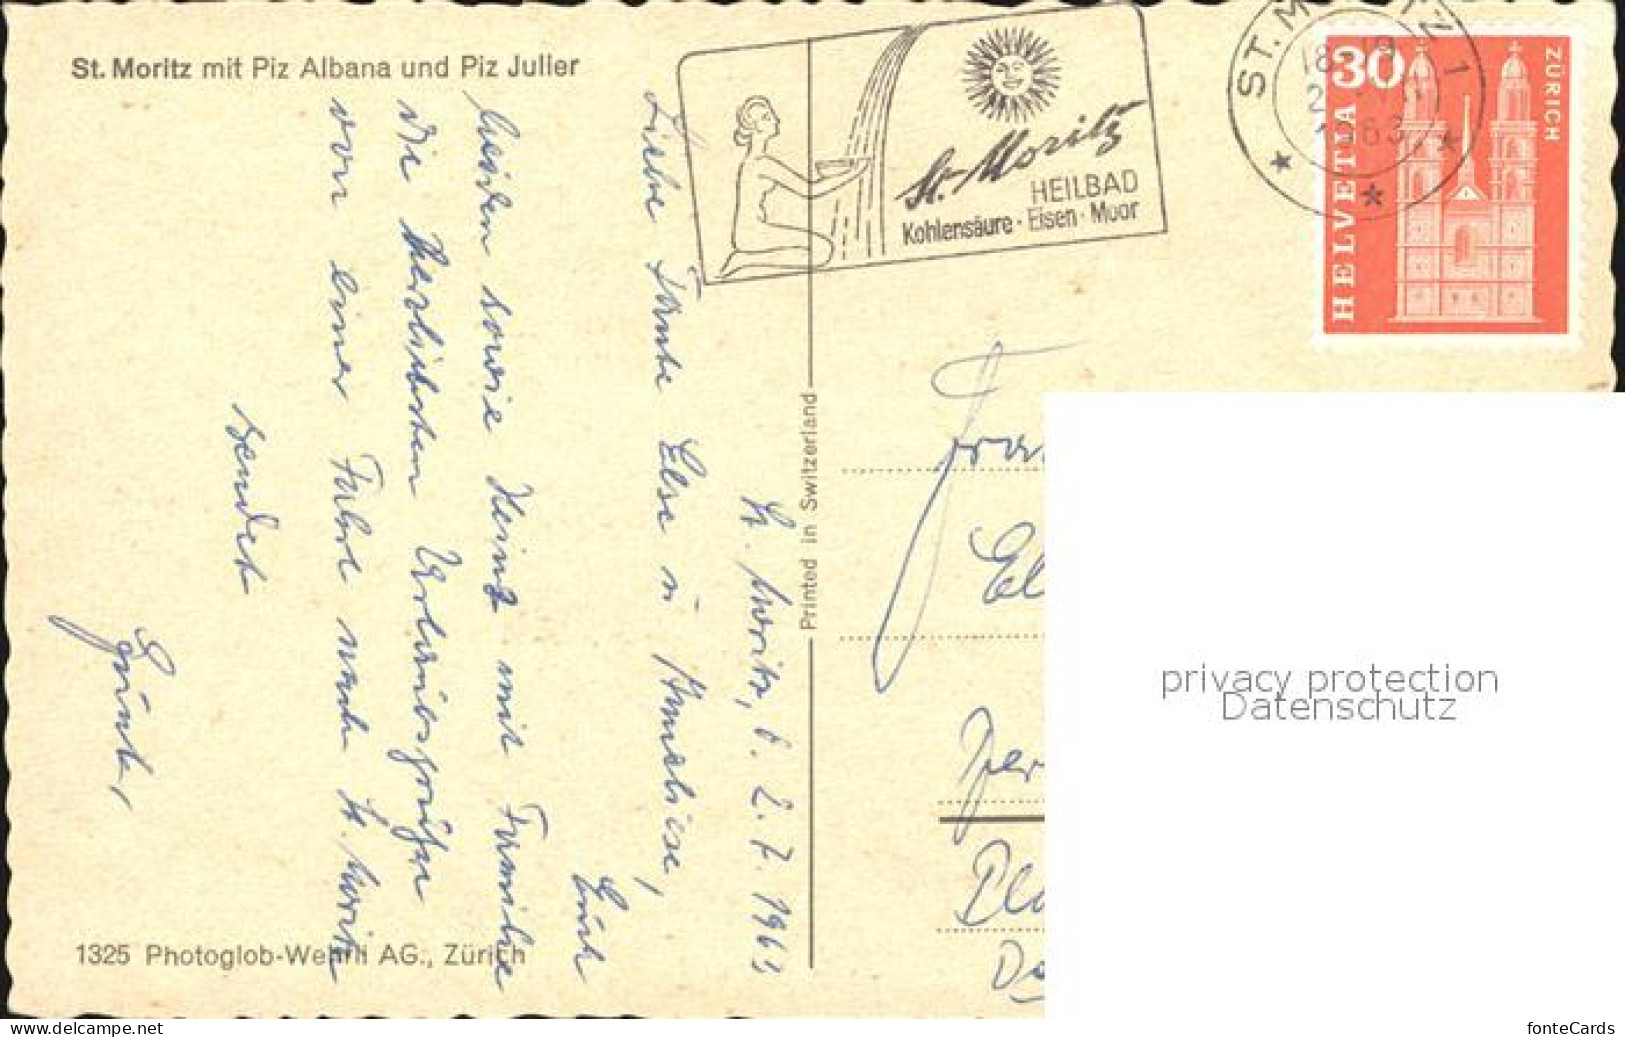 St. Moritz mit Piz Albana und Piz Julier
St. Moritz
HEILBAD
Kohlensäure · Eisen · Moor
ST. MORITZ 1
18-19
1963
30
HELVETIA
ZÜRICH
St. Moritz, d. 2.7.1963
Liebe Tante Else u. Anneliese,
Euch
beiden sowie Heinz mit Familie
die herzlichsten Urlaubsgrüße
von einer Fahrt nach St. Moritz
sendet
Günter
Printed in Switzerland
1325 Photoglob-Wehrli AG., Zürich
privacy protection
Datenschutz
www.delcampe.net
fonteCards